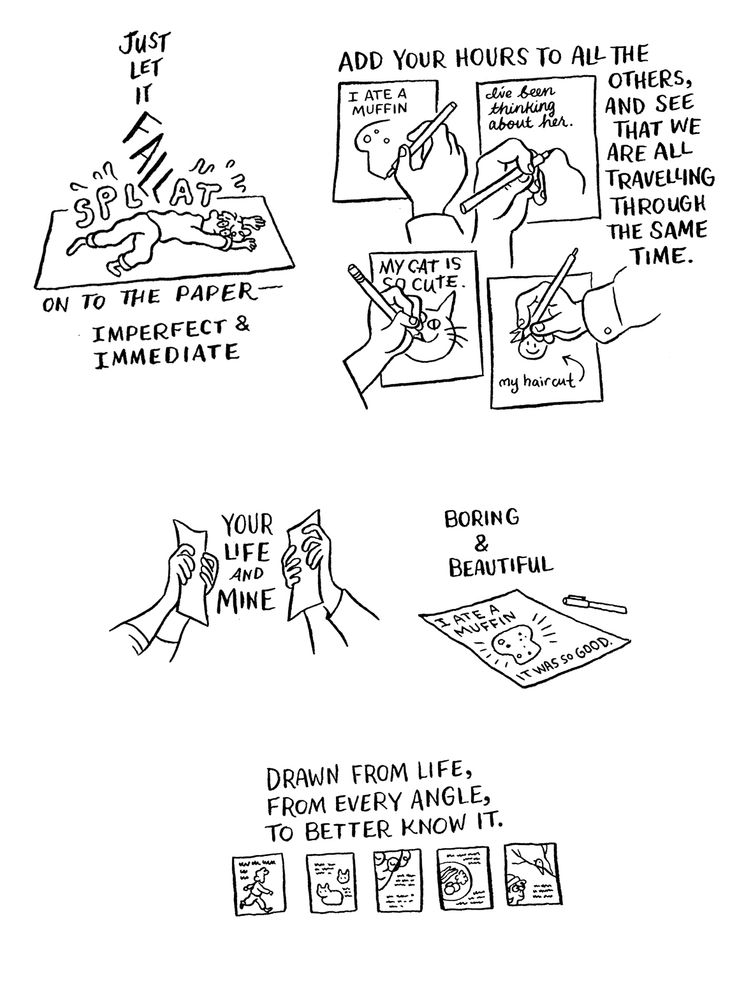 JUST
LET
IT
FALL
SPLAT
ON TO THE PAPER—
IMPERFECT &
IMMEDIATE
ADD YOUR HOURS TO ALL THE
OTHERS,
AND SEE
THAT WE
ARE ALL
TRAVELLING
THROUGH
THE SAME
TIME.
I ATE A
MUFFIN
I've been
thinking
about her.
MY CAT IS
SO CUTE.
my haircut
YOUR
LIFE
AND
MINE
BORING
&
BEAUTIFUL
I ATE A
MUFFIN
IT WAS SO GOOD.
DRAWN FROM LIFE,
FROM EVERY ANGLE,
TO BETTER KNOW IT.